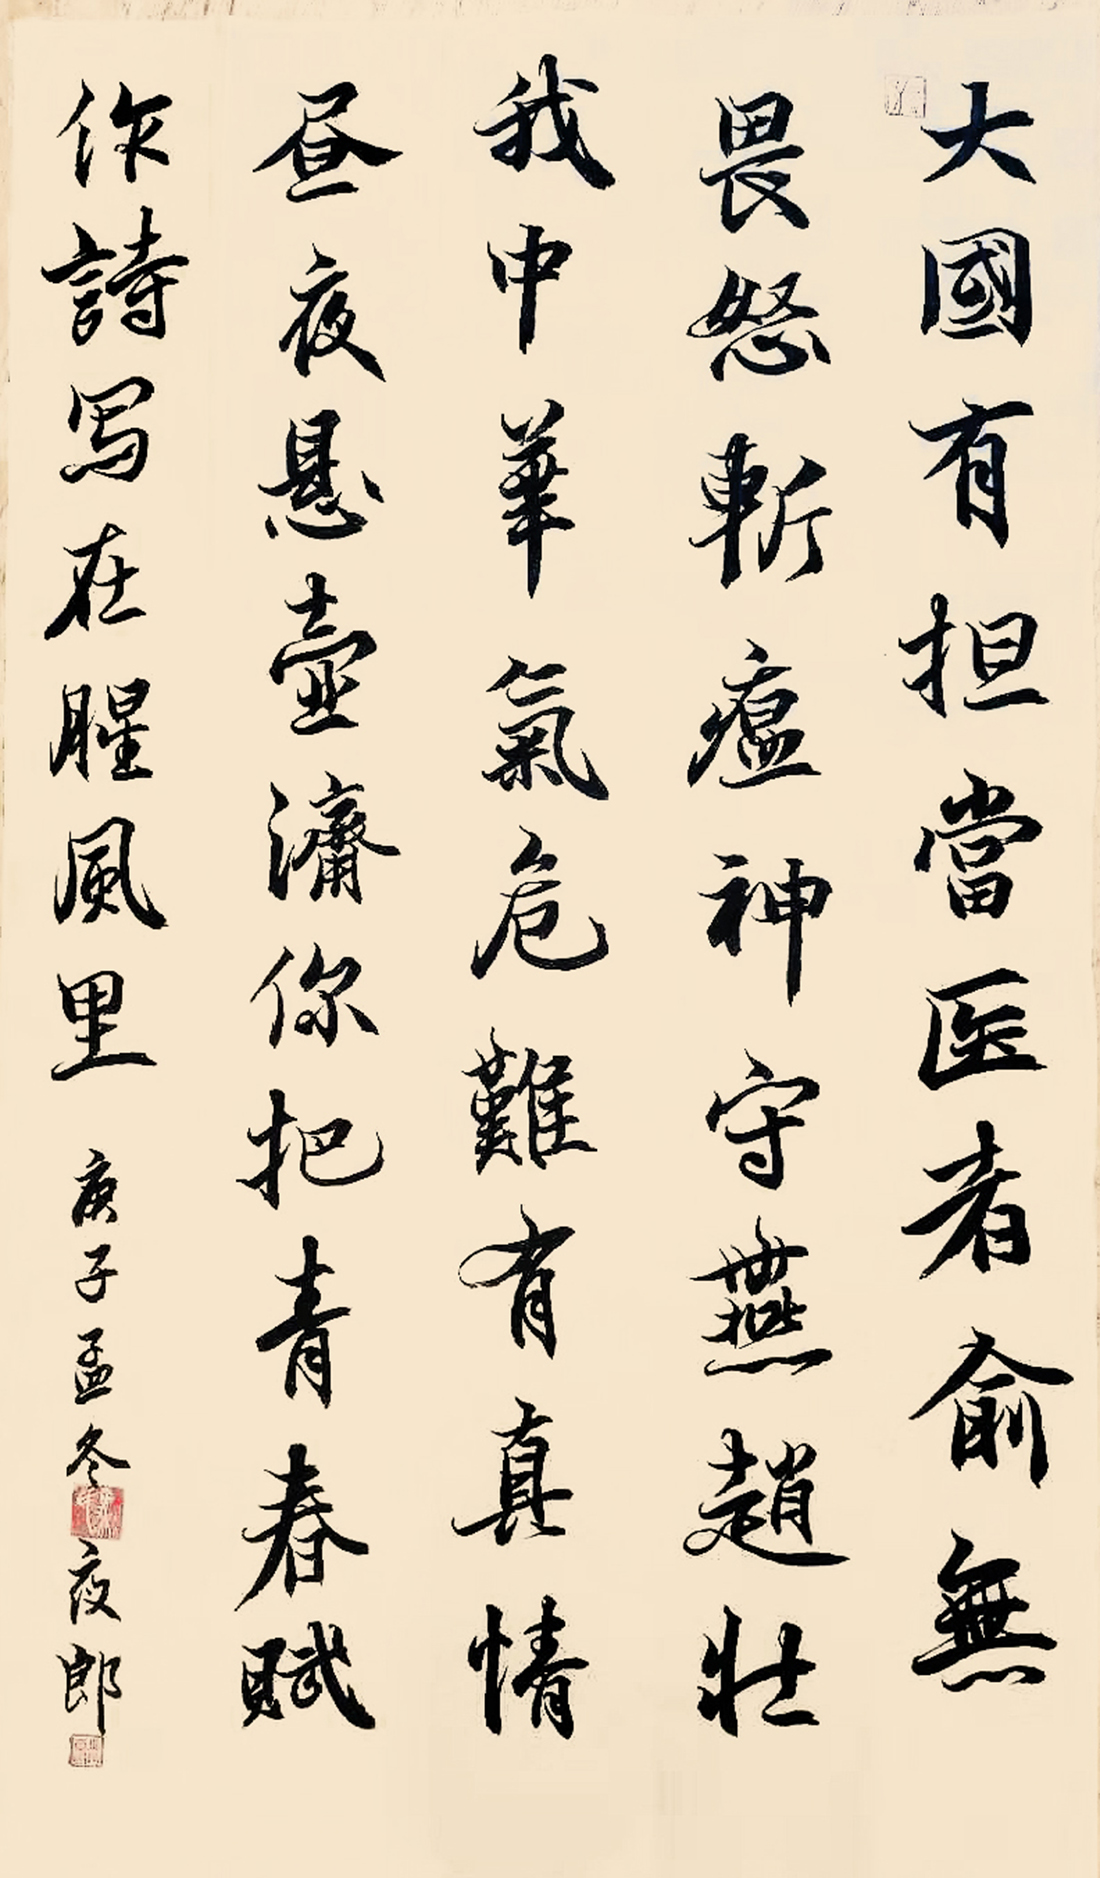 大國有担當医者俞無
畏怒斬瘟神守燕趙壮
我中華氣危難有真情
昼夜悬壷濟你把青春赋
作詩写在腥風里
庚子孟冬夜郎